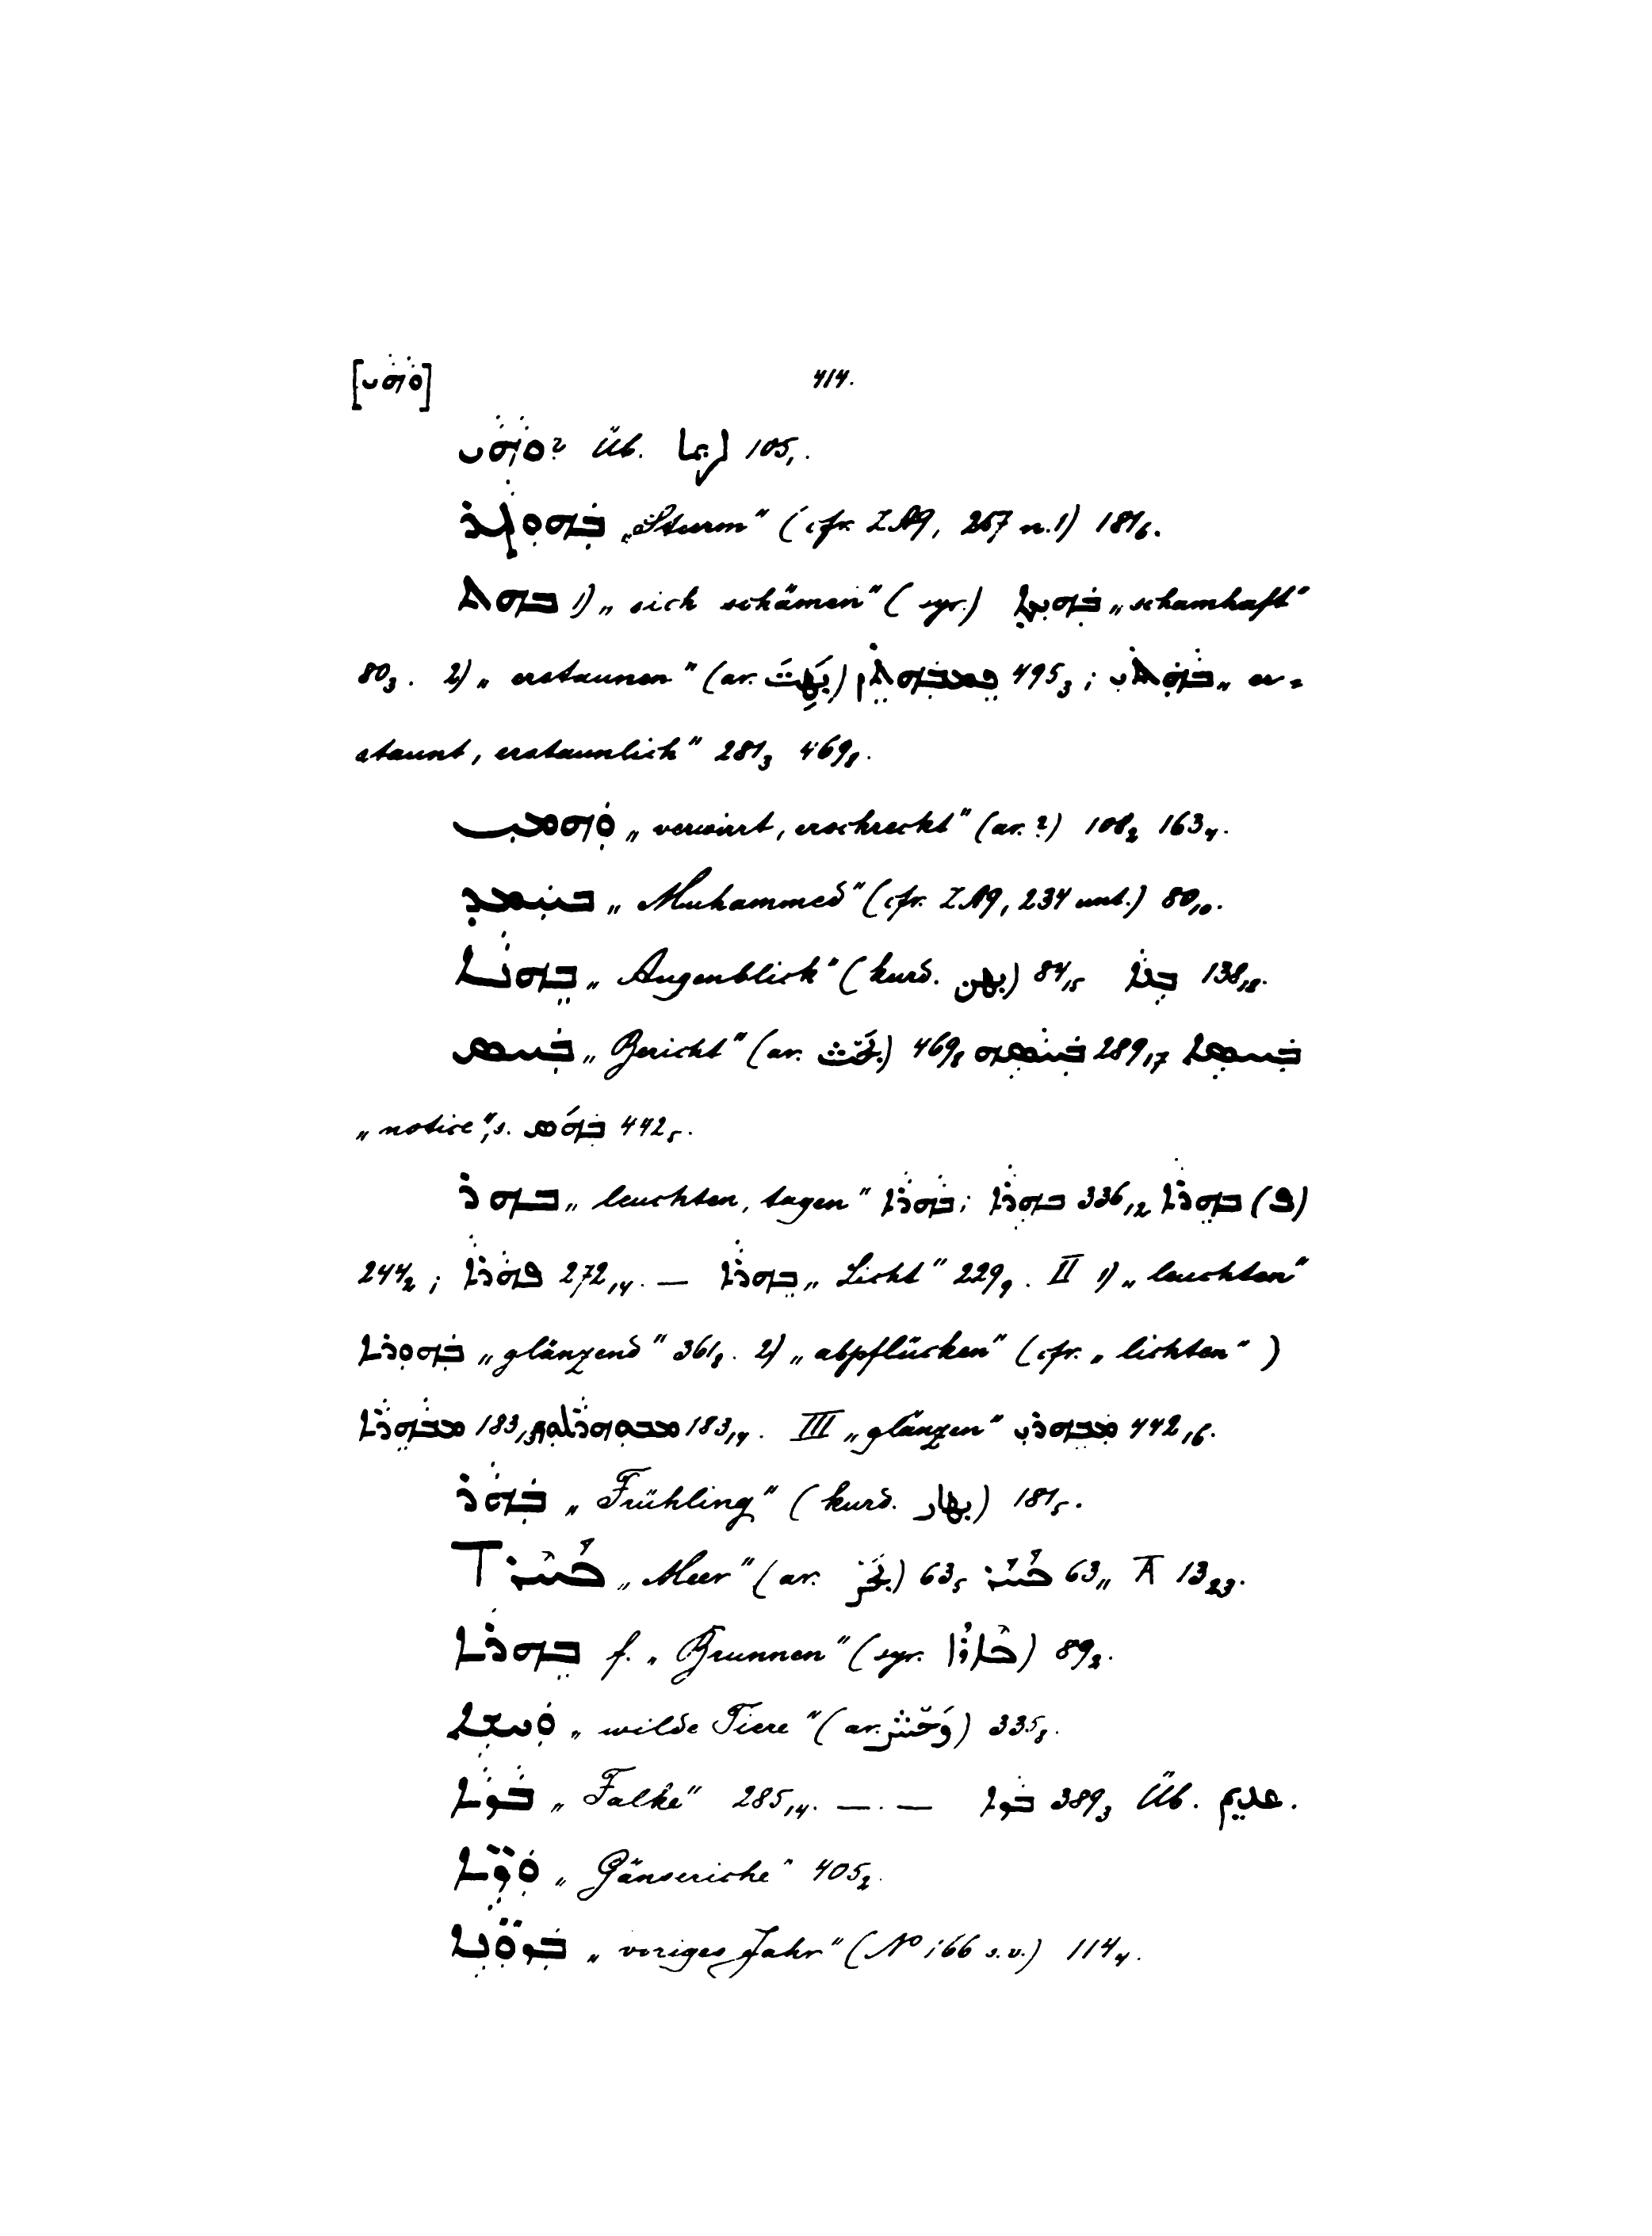 [ܘܗܝ] 414.
ܘܗܝ? Üb. 105,1.
ܒܗܘܓܪ „Sturm" (cfr. ZA 9, 267 n.1) 181,6.
ܒܗܬ 1) „sich schämen" (syr.) „schamhaft"
80,3. 2) „erstaunen" (ar. بَهِتَ) 495,3; „er-
staunt, erstaunlich" 281,3 469,8.
ܘܗܡܝ „verwirrt, erschreckt" (ar.?) 108,2 163,4.
ܒܚܡܕ „Muhammed" (cfr. ZA 9, 234 unt.) 80,10.
ܒܗܢܐ „Augenblick" (kurd. بهن) 84,15 ܒܢܐ 138,18.
ܒܚܣ „Bericht" (ar. بَحْث) 469,8 ܒܚܣܗ 289,17 ܒܚܣܐ
„notice", s. ܒܗܣ 442,5.
ܒܗܪ „leuchten, tagen" ܒܗܪܐ; ܒܗܪܐ 336,12 ܒܗܪܐ (ܦ)
244,2; ܦܗܪܐ 272,14. — ܒܗܪܐ „Licht" 229,9. II 1) „leuchten"
ܒܗܘܪܐ „glänzend" 361,8. 2) „abpflücken" (cfr. „lichten")
ܡܒܗܪܐ 183,13 183,14. III „glänzen" ܡܒܗܪܝ 442,16.
ܒܗܪ „Frühling" (kurd. بهار) 181,5.
T ܒܚܪ „Meer" (ar. بَحْر) 63,5 ܒܚܪ 63,11 A 13,23.
ܒܗܪܐ f. „Brunnen" (syr. ܒܐܪܐ) 89,2.
ܘܚܫܐ „wilde Tiere" (ar. وَحْش) 335,8.
ܒܘܐ „Falke" 285,14. —.— ܒܘܐ 389,3 Üb. عديم.
„Gänseriche" 405,2.
„voriges Jahr" (No 166 s.v.) 114,4.